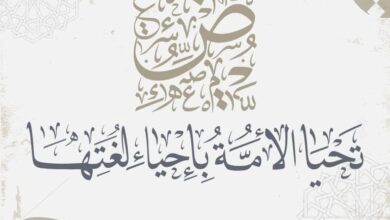 تَحيا الأمَّةُ بِإحياءِ لُغَتِهَا